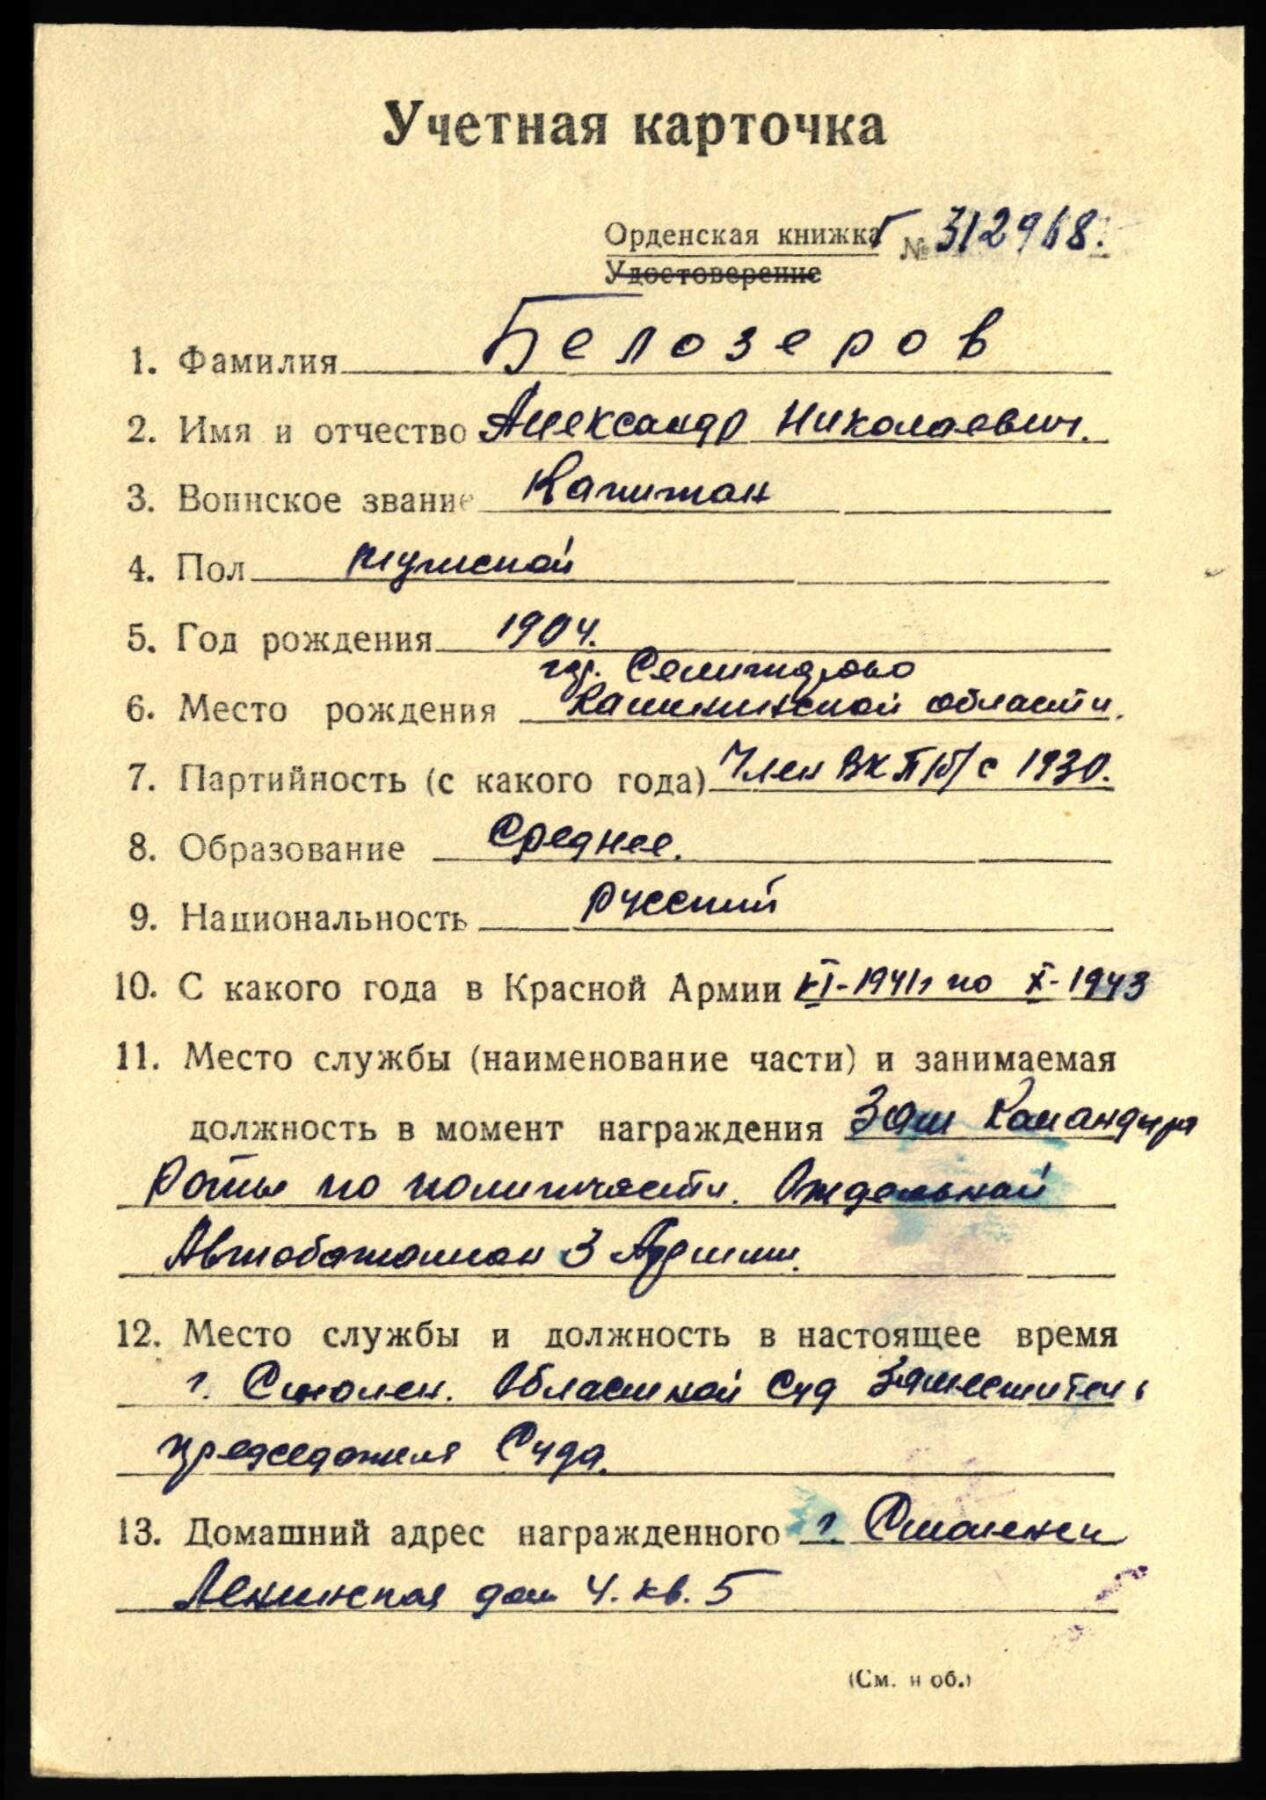 Учетная карточка
Орденская книжка Г № 312968.
Удостоверение
1. Фамилия Белозеров
2. Имя и отчество Александр Николаевич.
3. Воинское звание Капитан
4. Пол мужской
5. Год рождения 1904.
гор. Селижарово
6. Место рождения Калининской области.
7. Партийность (с какого года) Член ВКП/б/ с 1930.
8. Образование Среднее.
9. Национальность русский
10. С какого года в Красной Армии VI-1941г по X-1943
11. Место службы (наименование части) и занимаемая
должность в момент награждения Зам Командира
Роты по политчасти. Отдельной
Автобатальон 3 Армии.
12. Место службы и должность в настоящее время
г. Смолен. Областной Суд Заместитель
председателя Суда.
13. Домашний адрес награжденного г. Смоленск
Ленинская дом 4. кв. 5
(См. н об.)